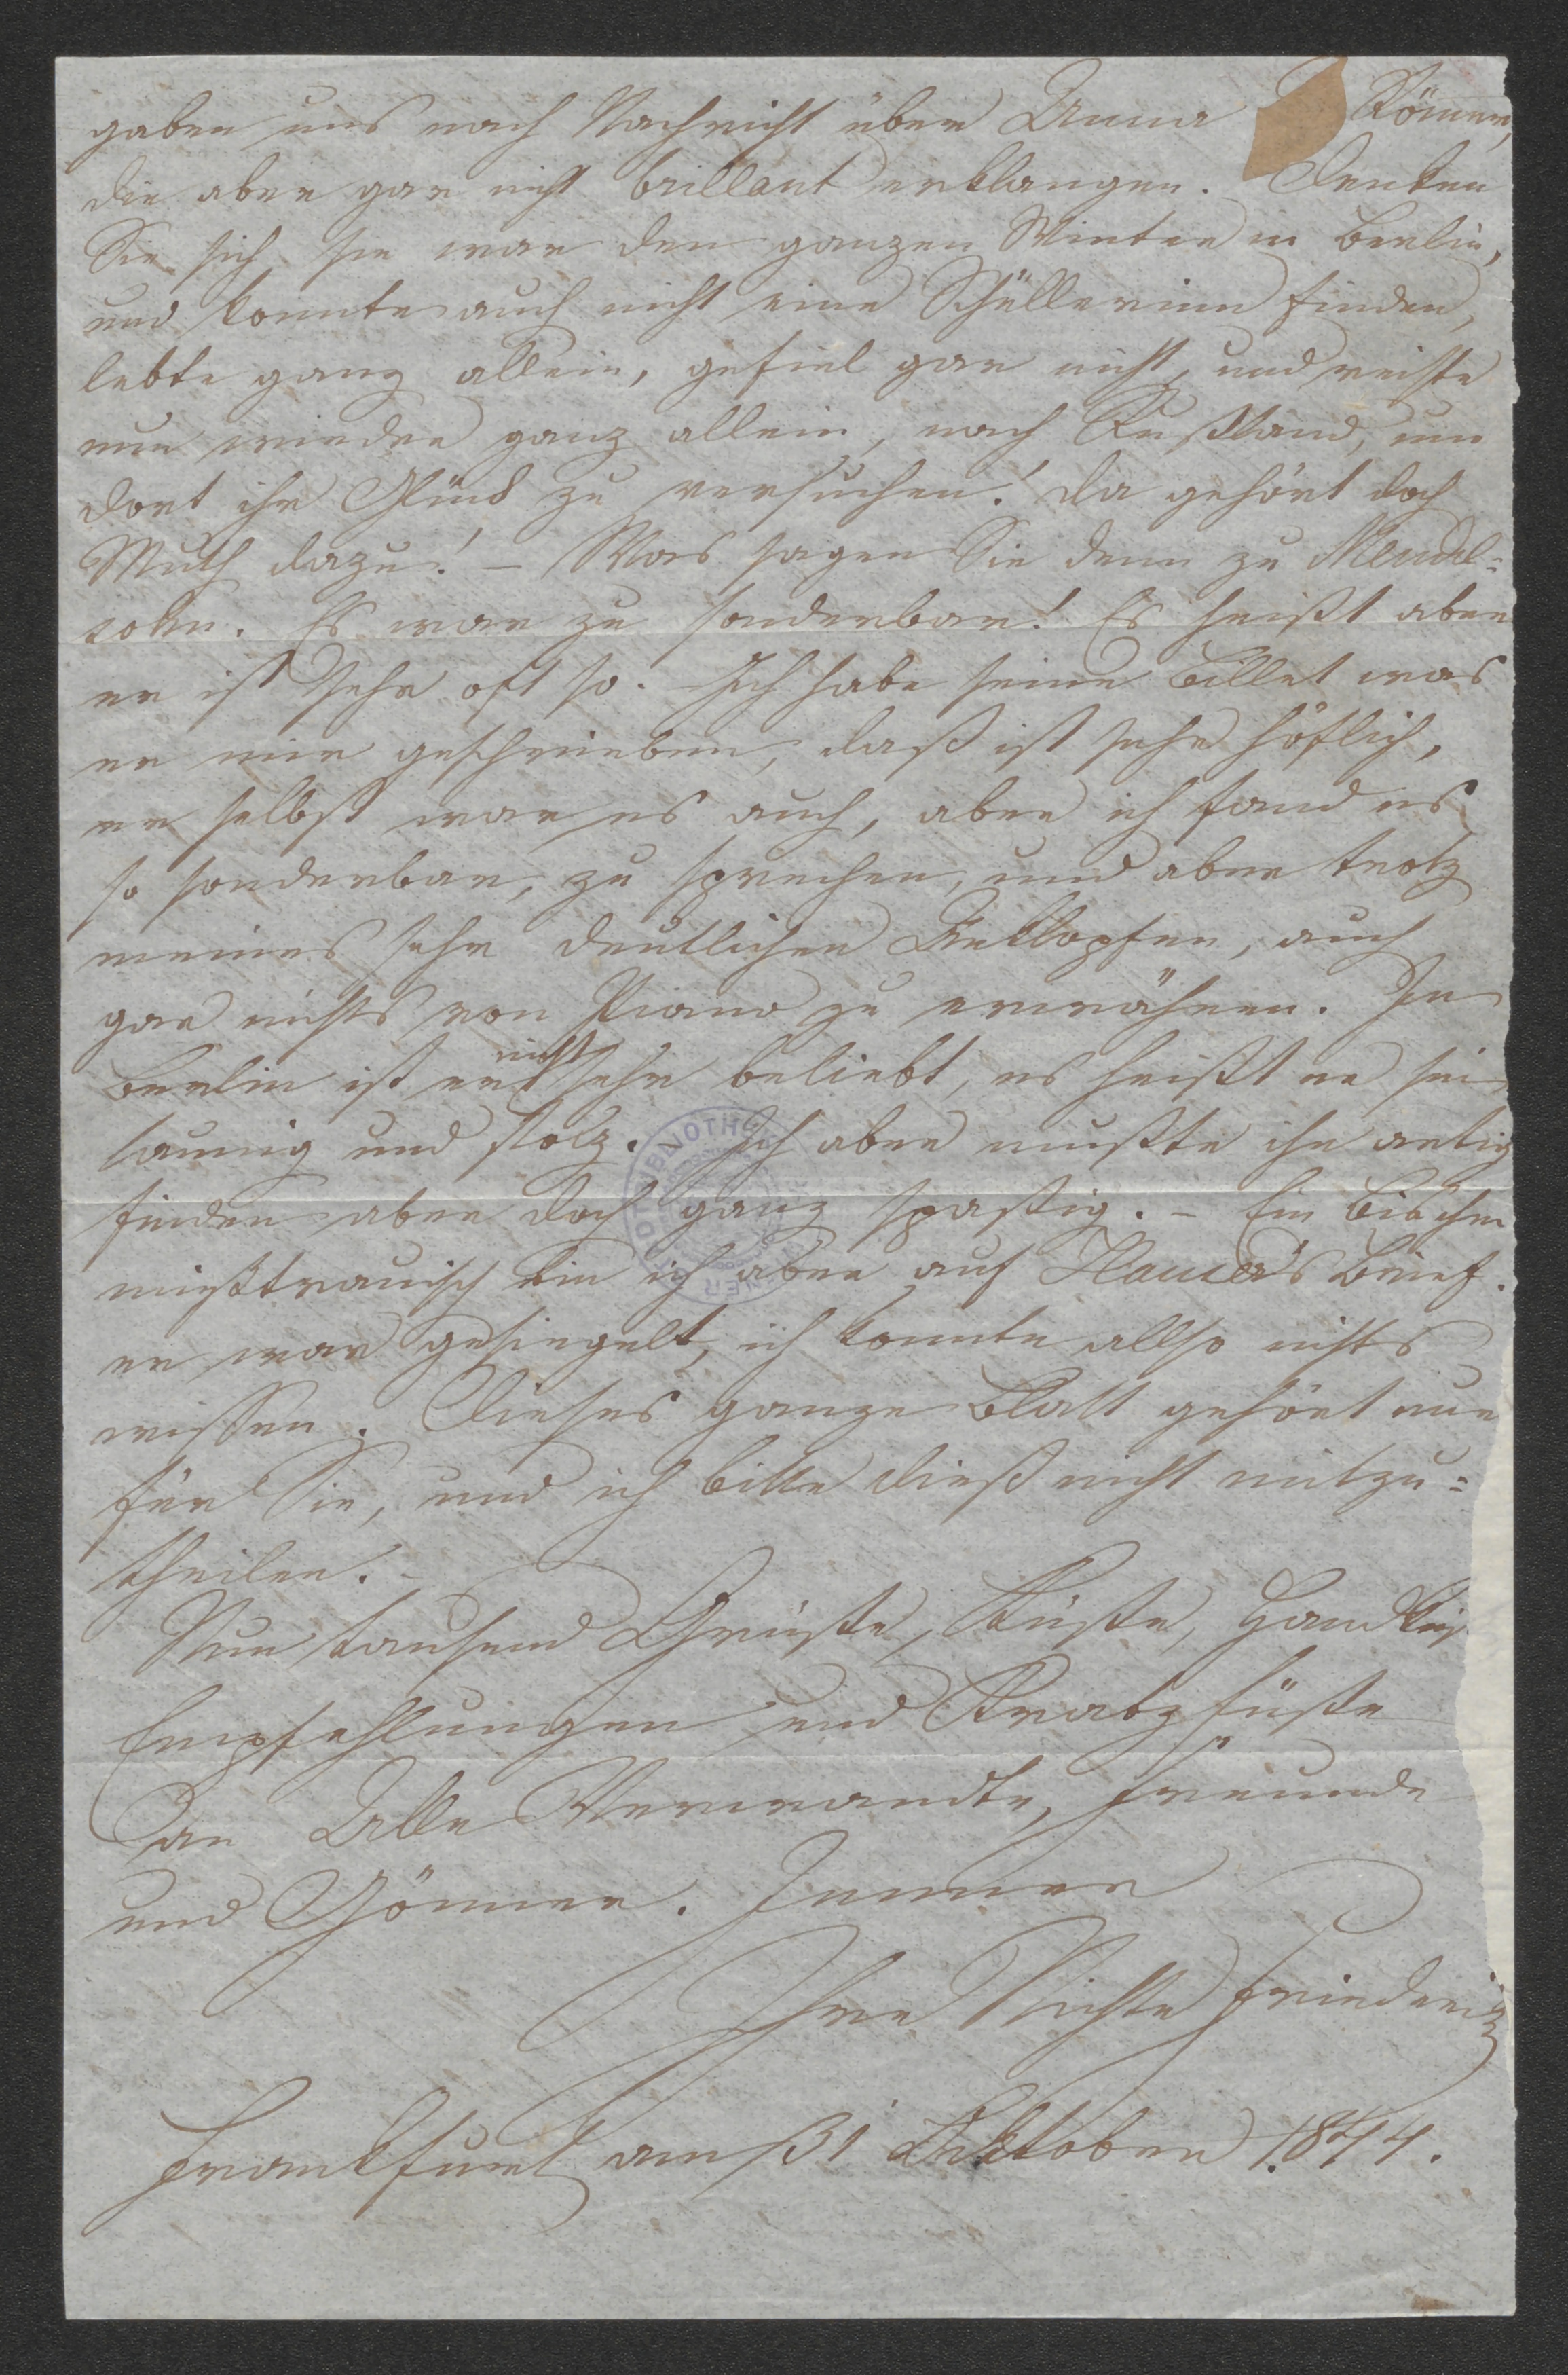 gaben uns noch Nachricht über Anna Römer,
die aber gar nicht brillant erklangen. Denken
Sie sich sie war den ganzen Winter in Berlin,
und konnte auch nicht eine Schüllerinn finden,
lebte ganz allein, gefiel gar nicht, und reiste
nun wieder ganz allein, nach Rußland, um
dort ihr Glück zu versuchen! Da gehört doch
Muth dazu! – Was sagen Sie denn zu Mendel=
sohn. Es war zu sonderbar! Es heißt aber
er ist sehr oft so. Ich habe seine Billet was
er mir geschrieben, daß ist sehr höflich,
er selbst war es auch, aber ich fand es
so sonderbar, zu sprechen, und aber trotz
meines sehr deutlichen Anklopfen, auch
gar nichts von Piano zu erwähnen. In
Berlin ist er nicht sehr beliebt, es heißt er sei
launig und stolz. Ich aber mußte ihn artig
finden aber doch ganz spaßig. – Ein Bischen
mißtrauisch bin ich aber auf Hauser's Brief.
er war gesiegelt, ich konnte allso nichts
wissen. Dieses ganze Blatt gehört nur
für Sie, und ich bitte dieß nicht mitzu=
theilen. –
Nun tausend Grüße, Küße,
Empfehlungen und Kratzfüße
an Alle Verwandte, Freunde
und Gönner. Immer
Ihre Nichte Friederi
Frankfurt am 31 Oktober 1844.